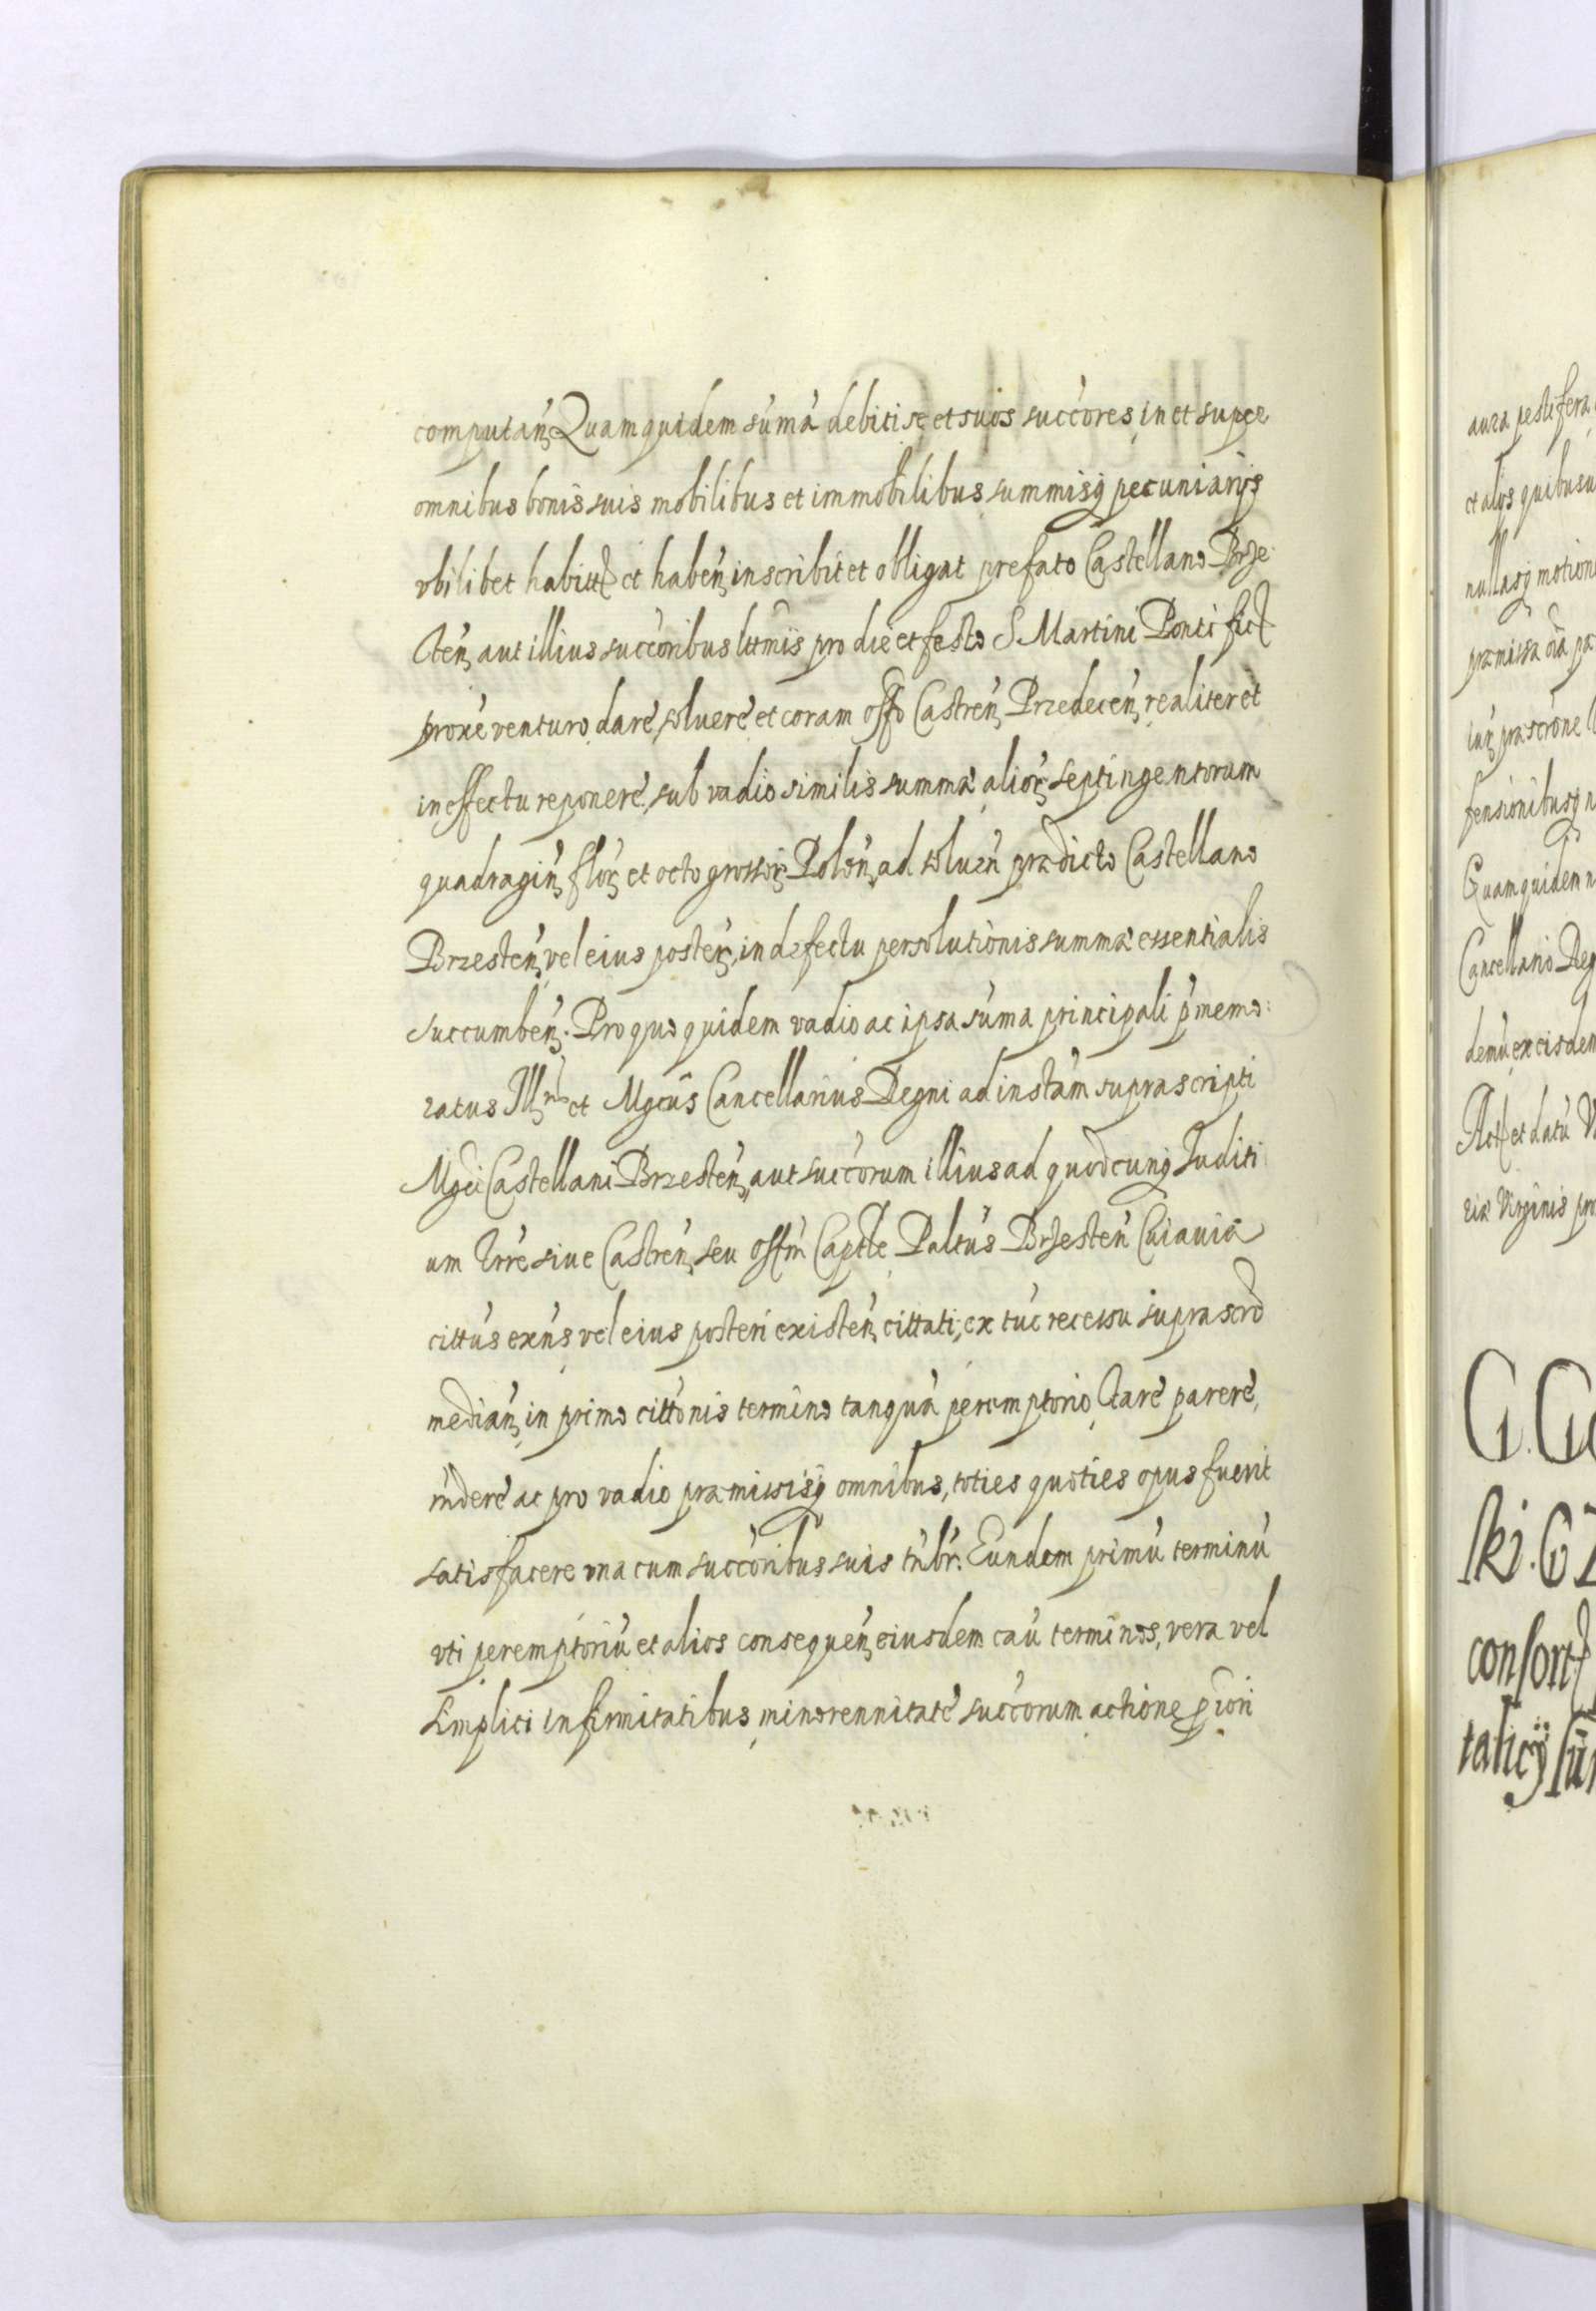 computań Quam quidem sumá debiti se et suos succores, in et super
omnibus bonis suis mobilibus et immobilibus summisq́ pecuniarijs
vbilibet habitis et habeń inscribit et obligat prefato Castellano Brze
steń aut illius succoribus lttmis pro die et festo S Martini Pontific
proxé venturo daré, soluere et coram offo Castreń Przedeceń realiter et
in effectu reponere, sub vadio similis summæ alioŕ septingentorum
quadragiń floŕ et octo grossoŕ Poloń, ad solueń prædicto Castellano
Brzesteń vel eius posteŕ, in defectu persolutionis summæ essentialis
succumbeń. Pro quo quidem vadio ac ipsa suma principali ṕmemo:
ratus Illris et Mgcus Cancellarius Regni ad instám suprascripti
Mgci Castellani Brzesteń, aut succorum illius ad quodcunq́ Juditi
um Trre siue Castreń seu offm Captle Paltus Brzesteń Cuiauiæ
cittus exńs vel eius posteri existeń cittati, ex túc recessu suprascrd
mediań, in primo cittonis termino tanquá peremptorio, stare parere,
rńdere ac pro vadio præmissisq́ omnibus, toties quoties opus fuerit
satisfacere vna cum succoribus suis tńbr. Eundem primú terminú
vti peremptoriú et alios consequeń eiusdem caú terminos, vera vel
simplici infirmitatibus, minorennitate succorum actione
aura pestifera
et alijs quibusu
nullasq́ motion
præmissa oía pa
fensionibusq́ n
Quamquidem n
Cancellario Reg
demú ex eisdem
Act et datú V
riæ Virginis pro
G. G
ski. G
consort
talicÿ